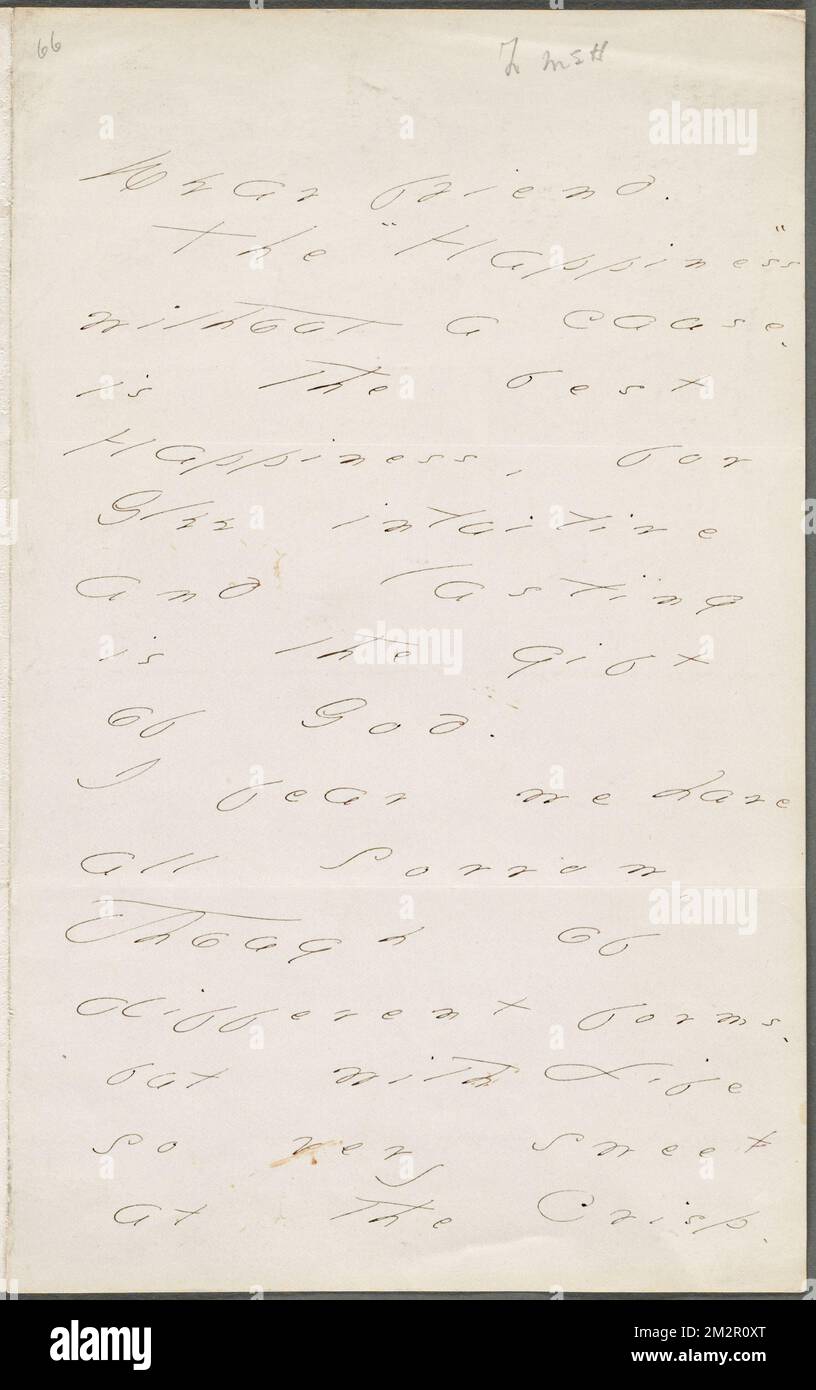 66
Dear friend.
The "Happiness"
without a cause,
is the best
Happiness, for
Glee intuitive
and lasting
is the gift
of God.
I fear we have
all Sorrow,
Though of
different forms,
but with Life
so very sweet
at the Crisp,
alamy
Image ID: 2M2R0XT
www.alamy.com